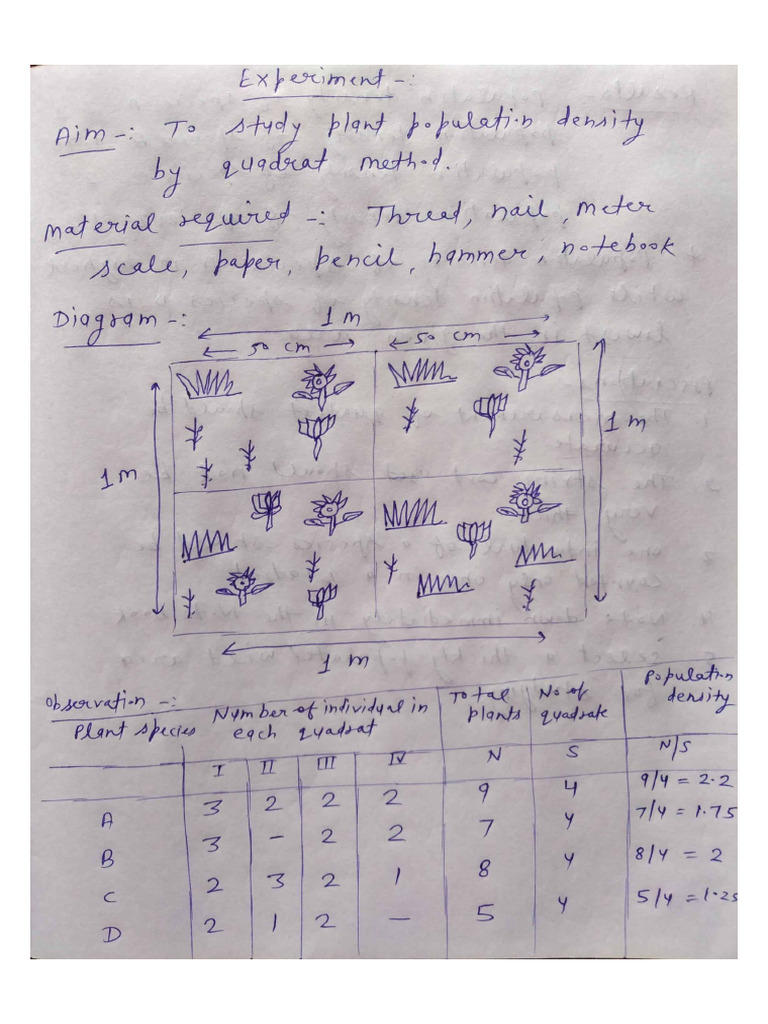 Experiment -:
Aim -: To study plant population density
by quadrat method.
Material required -: Thread, nail, meter
scale, paper, pencil, hammer, notebook
Diagram -:
1 m
50 cm
50 cm
1 m
1 m
1 m
Observation -:
Plant species
Number of individual in
each quadrat
Total
plants
No of
quadrate
Population
density
I II III IV N S N/S
A 3 2 2 2 9 4 9/4 = 2.2
B 3 - 2 2 7 4 7/4 = 1.75
C 2 3 2 1 8 4 8/4 = 2
D 2 1 2 - 5 4 5/4 = 1.25